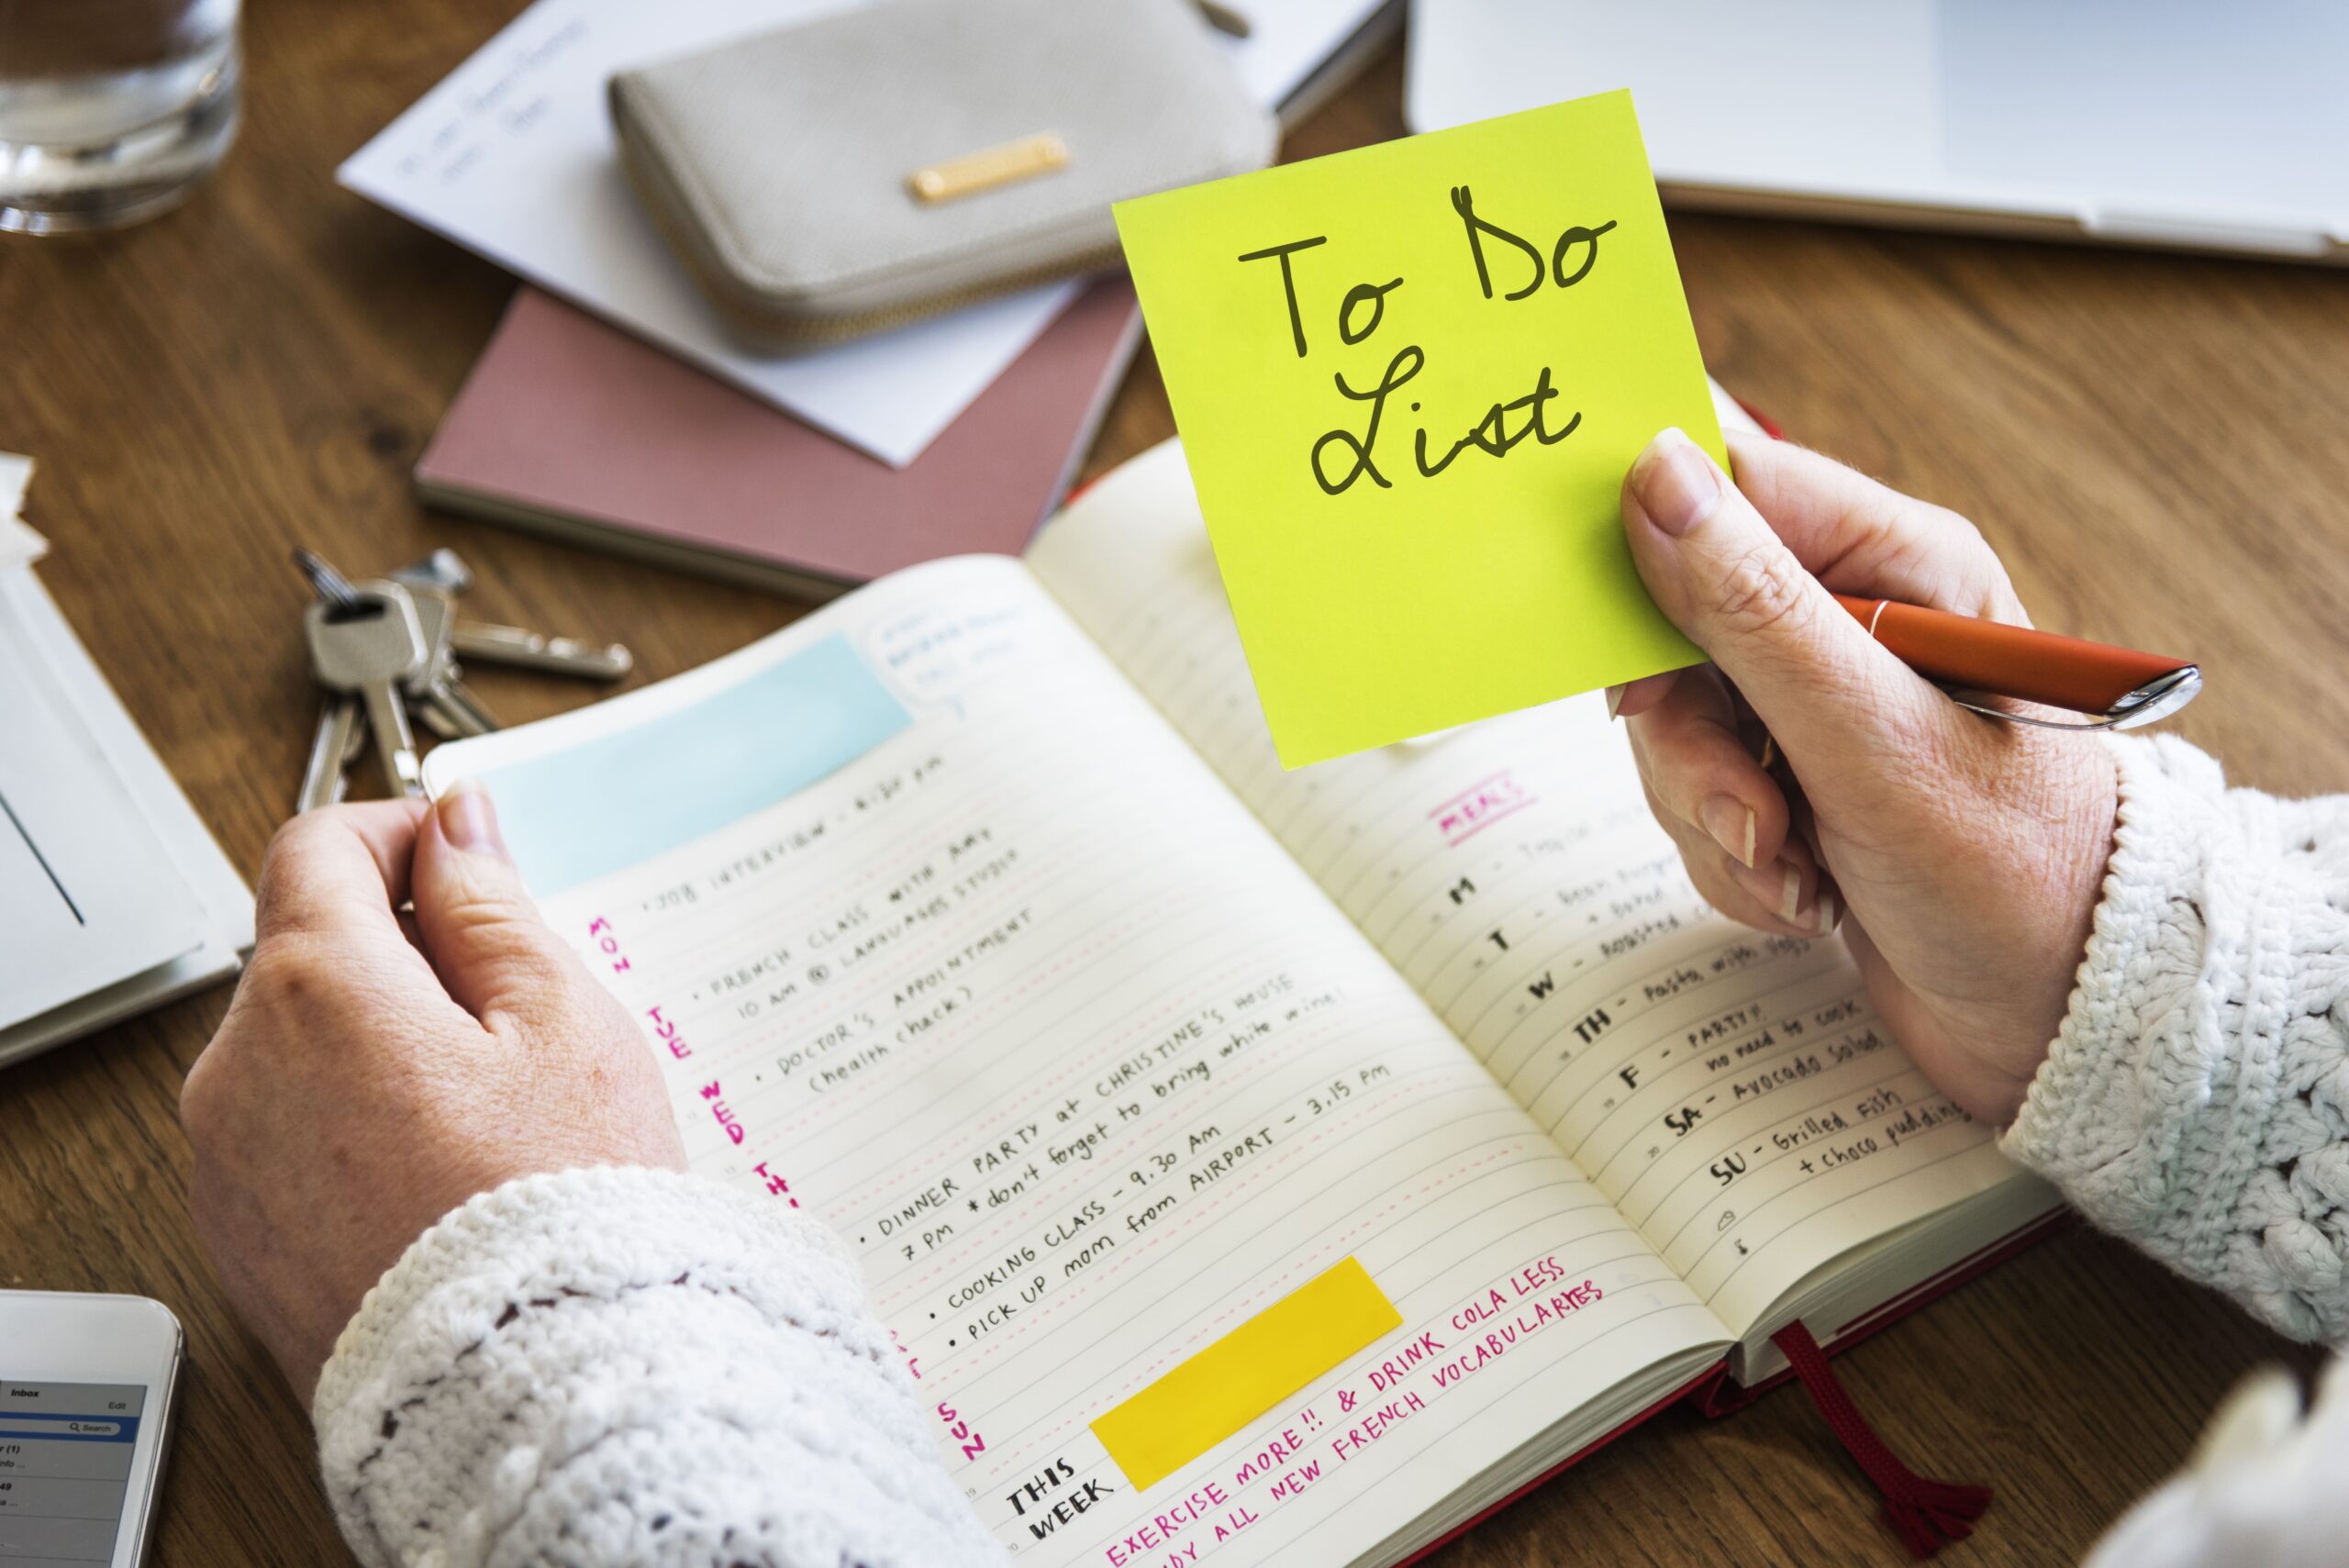 To Do
List
MON
• JOB INTERVIEW -
TUE
• FRENCH CLASS WITH AMY
10 AM @ LANGUAGES STUDIO
WED
• DOCTOR'S APPOINTMENT
(health check)
TH.
• DINNER PARTY at CHRISTINE'S HOUSE
7 PM * don't forget to bring white wine!
• COOKING CLASS - 9.30 AM
• PICK UP mom from AIRPORT - 3.15 PM
SUN
THIS
WEEK
EXERCISE MORE!! & DRINK COLA LESS
ALL NEW FRENCH VOCABULARIES
MEALS
M -
T - Bean
+ Baked
W - Roasted
TH - Pasta with
F - PARTY!!
no need to cook
SA - Avocado salad
SU - Grilled Fish
+ choco pudding
Inbox
Edit
Search